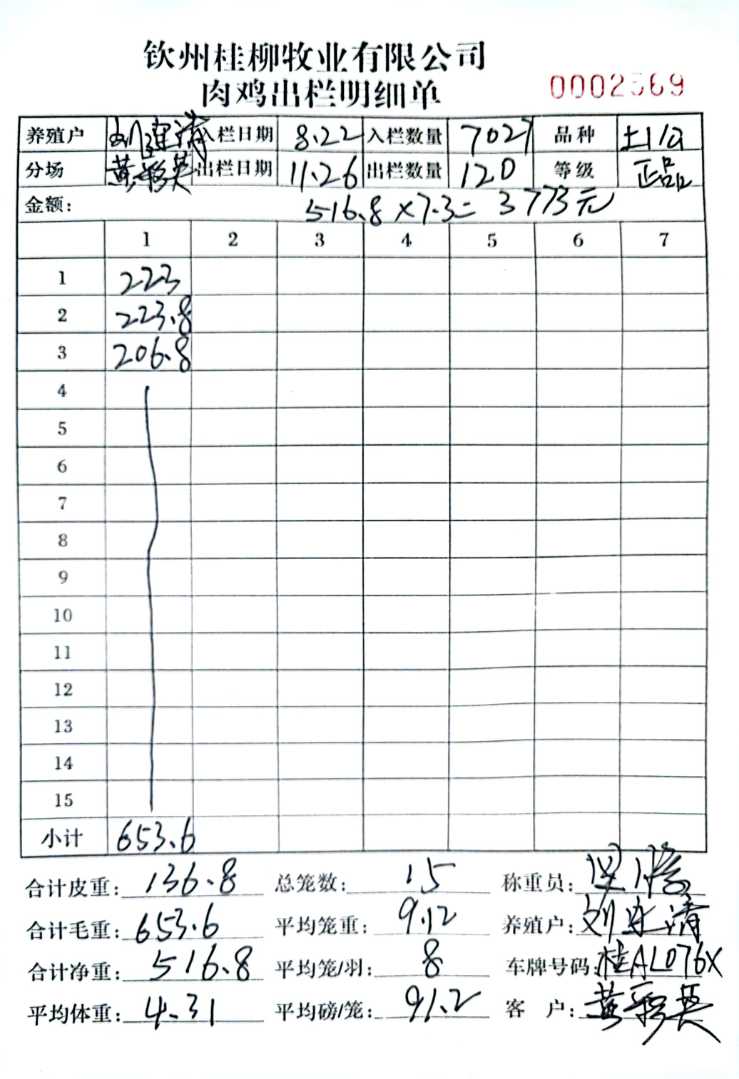 钦州桂柳牧业有限公司
肉鸡出栏明细单 0002569
养殖户 刘连清 入栏日期 8.22 入栏数量 7027 品种 土1公
分场 黄彩英 出栏日期 11.26 出栏数量 120 等级 正品
金额: 516.8×7.3= 3773元
1 2 3 4 5 6 7
1 223
2 223.8
3 206.8
4
5
6
7
8
9
10
11
12
13
14
15
小计 653.6
合计皮重: 136.8 总笼数: 15 称重员:
合计毛重: 653.6 平均笼重: 9.12 养殖户: 刘连清
合计净重: 516.8 平均笼/羽: 8 车牌号码: 桂AL076X
平均体重: 4.31 平均磅/笼: 91.2 客户: 黄彩英